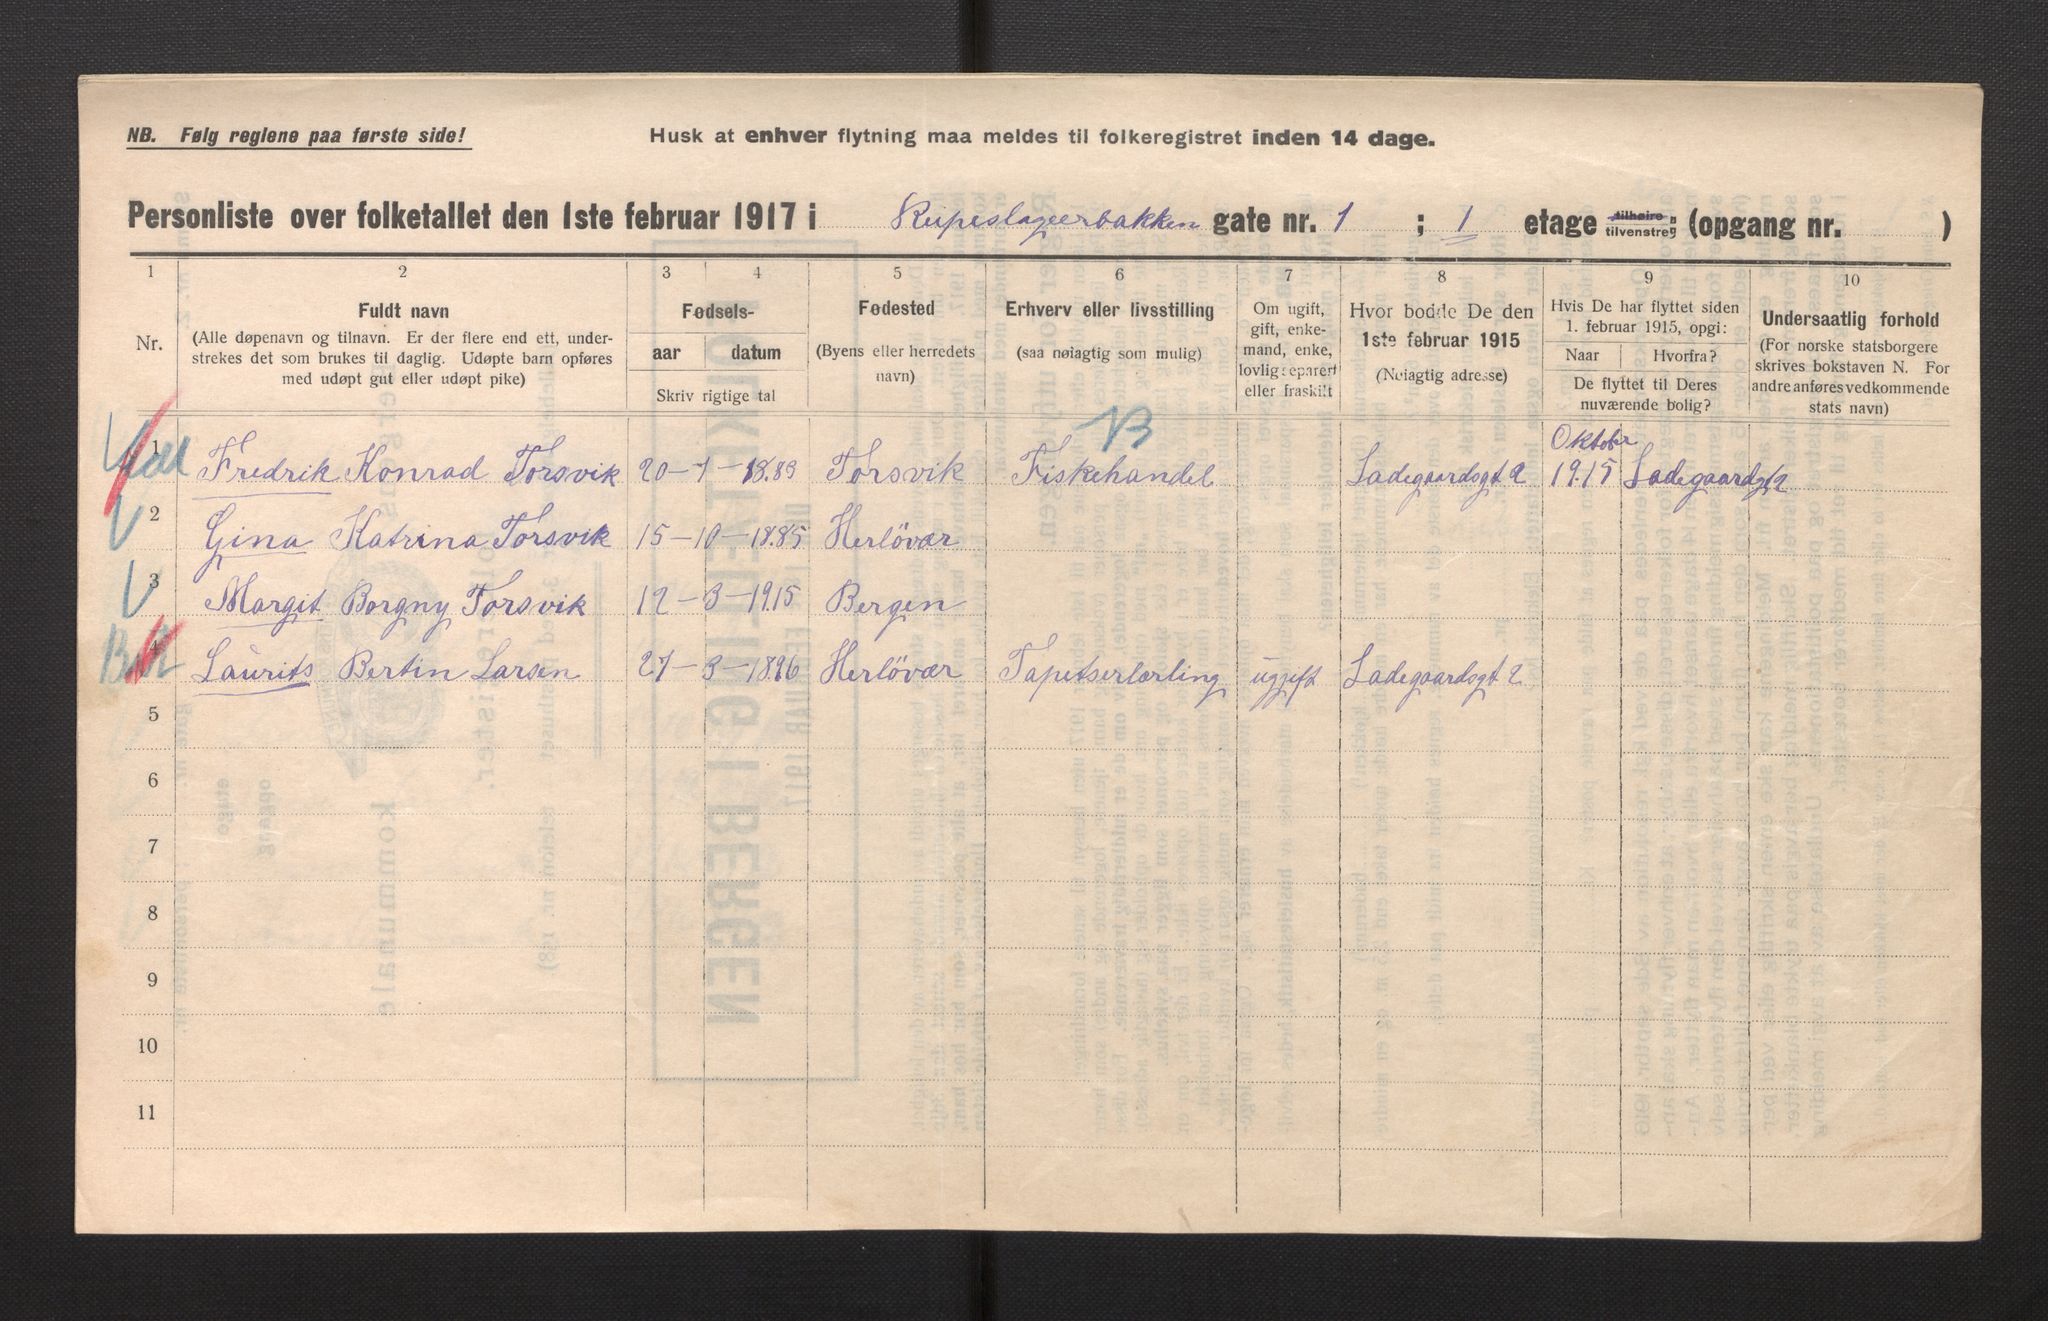 NB. Følg reglene paa første side!
Husk at enhver flytning maa meldes til folkeregistret inden 14 dage.
Personliste over folketallet den 1ste februar 1917 i Reipeslagerbakken gate nr. 1 ; 1 etage tilhøire tilvenstre (opgang nr. )
1 2 3 4 5 6 7 8 9 10
Nr.
Fuldt navn
(Alle døpenavn og tilnavn. Er der flere end ett, under-
strekes det som brukes til daglig. Udøpte barn opføres
med udøpt gut eller udøpt pike)
Fødsels-
aar datum
Skriv rigtige tal
Fødested
(Byens eller herredets
navn)
Erhverv eller livsstilling
(saa nøiagtig som mulig)
Om ugift,
gift, enke-
mand, enke,
lovlig separert
eller fraskilt
Hvor bodde De den
1ste februar 1915
(Nøiagtig adresse)
Hvis De har flyttet siden
1. februar 1915, opgi:
Naar Hvorfra?
De flyttet til Deres
nuværende bolig?
Undersaatlig forhold
(For norske statsborgere
skrives bokstaven N. For
andre anføres vedkommende
stats navn)
B
1 Fredrik Konrad Torsvik 20-7-1889 Torsvik Fiskehandel Ladegaardsgt 2 Oktobr 1915 Ladegaardsgt 2
2 Gina Katrina Torsvik 15-10-1885 Herlövær
3 Margit Borgny Torsvik 12-3-1915 Bergen
4 Laurits Bertin Larsen 27-3-1896 Herlövær Tapetserlærling ugift Ladegaardsgt 2
5
6
7
8
9
10
11